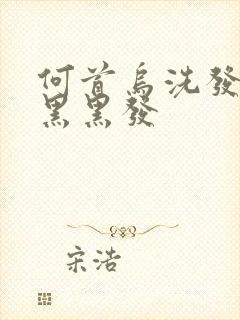 何首烏洗發
黑黑發
宋浩